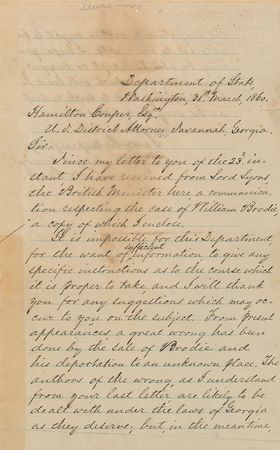 Department of State,
Washington, 31st March, 1860.
Hamilton Couper, Esqr.,
U. S. District Attorney, Savannah, Georgia.
Sir:
Since my letter to you of the 23d in-
stant I have received from Lord Lyons
the British Minister here a communica
tion respecting the case of William Brodie
a copy of which I inclose.
It is impossible for this Department
sufficient
for the want of information to give any
specific instructions as to the course which
it is proper to take, and I will thank
you for any suggestions which may oc-
cur to you on the subject. From present
appearances, a great wrong has been
done by the sale of Brodie and
his deportation to an unknown place. The
authors of the wrong, as I understand
from your last letter, are likely to be
dealt with under the laws of Georgia
as they deserve; but, in the meantime,